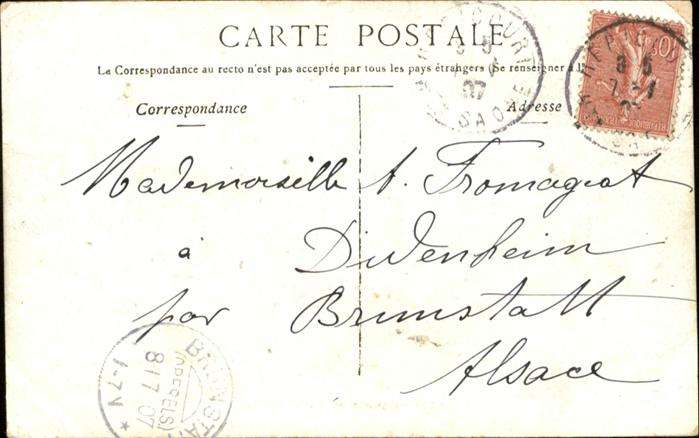 CARTE POSTALE
La Correspondance au recto n'est pas acceptée par tous les pays étrangers (Se renseigner à
Correspondance
Adresse
Mademoiselle A. Fromageat
à Didenheim
par Brunstatt
Alsace
10
BRUNSTATT
(OBERELS)
8 1 7 07
1-7 N
HAUTE SAONE
07